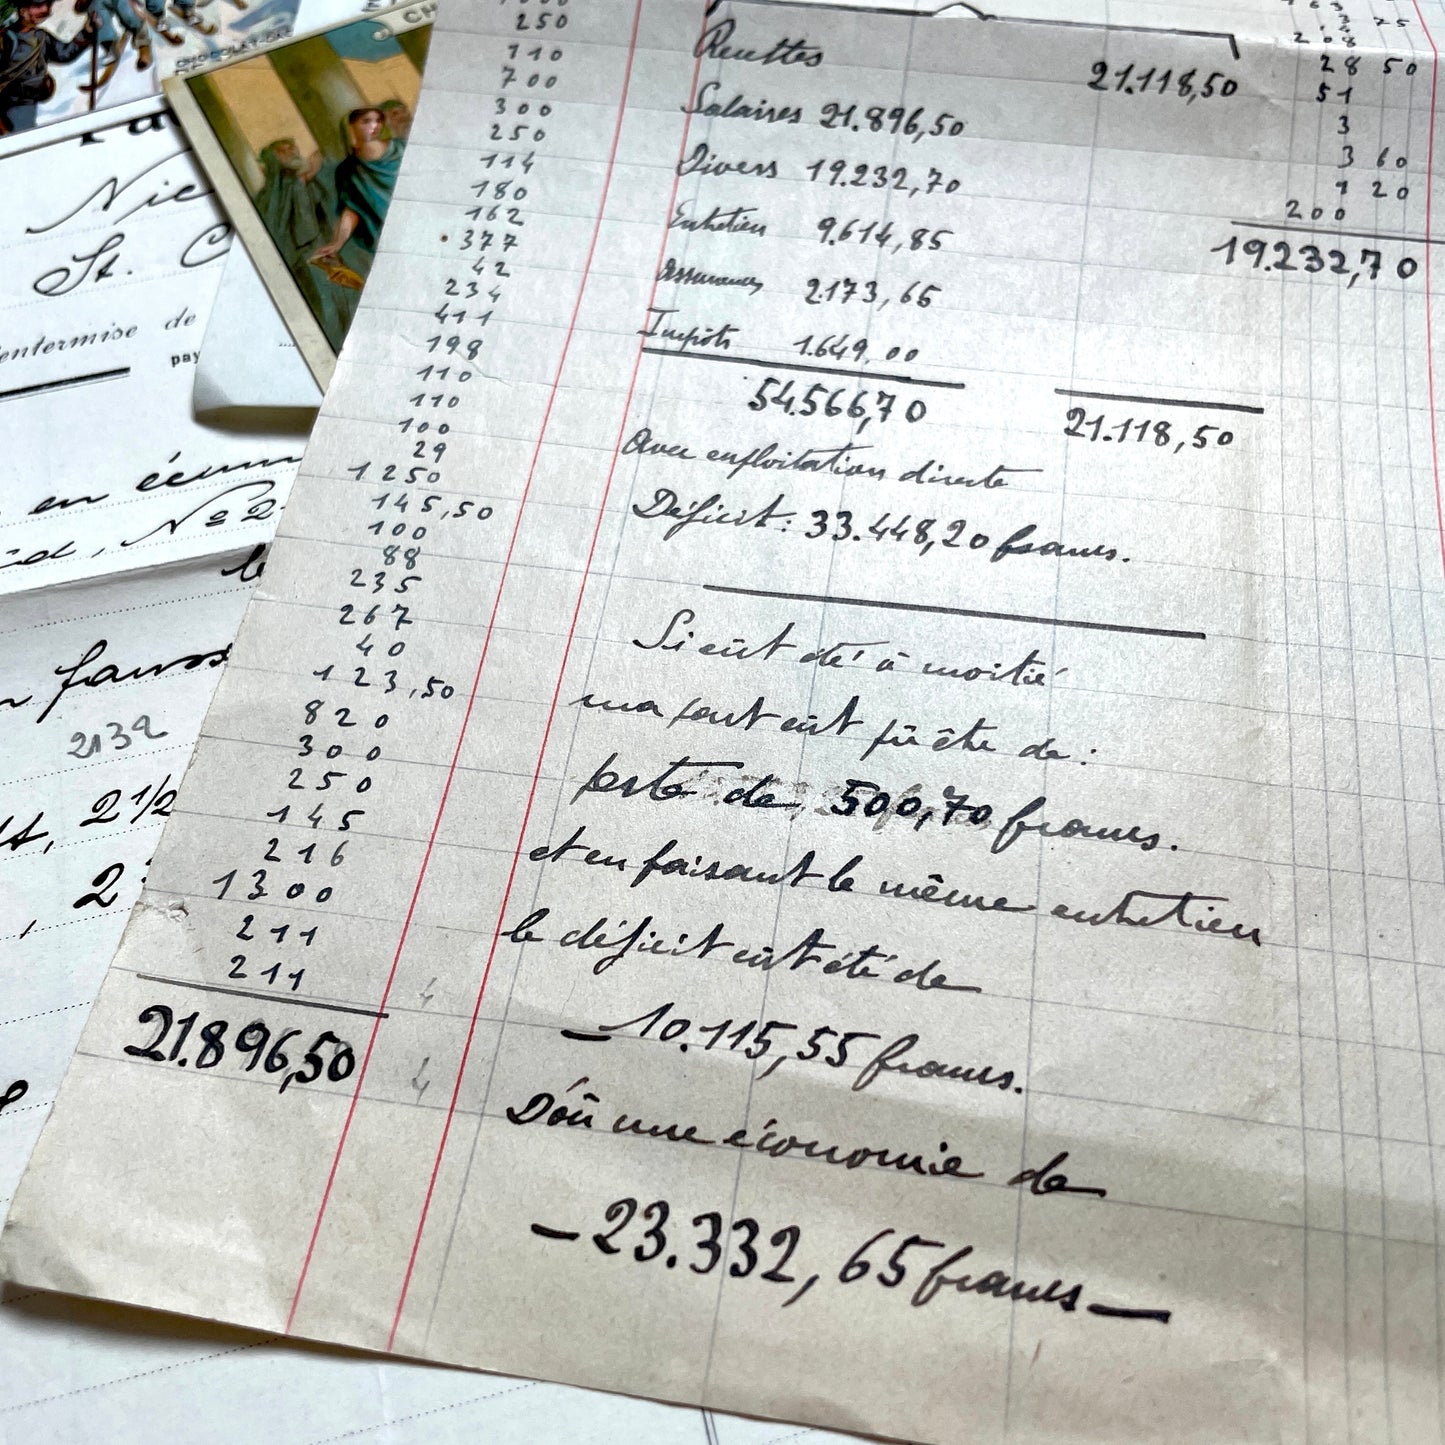 CH
CHOCOLAT
Nic
St. C
entermise de
pay
en écum
No 2
le
2132
2 1/2
2
250
110
700
300
250
114
180
162
377
42
234
411
198
110
110
100
29
1250
145,50
100
88
235
267
40
123,50
820
300
250
145
216
1300
211
211
21.896,50
4
4
Recettes 21.118,50
Salaires 21.896,50
Divers 19.232,70
Entretien 9.614,85
Assurances 2173,65
Impôts 1.649,00
54.566,70 21.118,50
Avec exploitation directe
Déficit: 33.448,20 francs.
Si eût été à moitié
ma part eût pû être de:
perte de 500,70 francs.
et en faisant le même entretien
le déficit eût été de
— 10.115,55 francs.
D'où une économie de
— 23.332,65 francs —
75
208
28 50
51
3
3 60
1 20
200
19.232,70